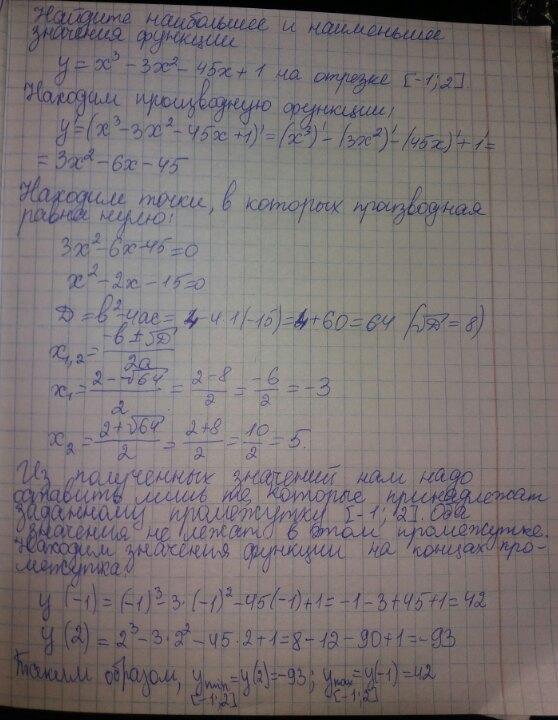 Найдите наибольшее и наименьшее
значения функции
y = x³ − 3x² − 45x + 1 на отрезке [-1; 2].
Находим производную функции:
y' = (x³ − 3x² − 45x + 1)' = (x³)' − (3x²)' − (45x)' + 1' =
= 3x² − 6x − 45
Находим точки, в которых производная
равна нулю:
3x² − 6x − 45 = 0
x² − 2x − 15 = 0
D = b² − 4ac = 4 − 4·1(−15) = 4 + 60 = 64 (√D = 8)
x₁,₂ = (−b ± √D) / 2a
x₁ = (2 − √64) / 2 = (2 − 8) / 2 = −6 / 2 = −3
x₂ = (2 + √64) / 2 = (2 + 8) / 2 = 10 / 2 = 5.
Из полученных значений нам надо
оставить лишь те, которые принадлежат
заданному промежутку [-1; 2]. Оба
значения не лежат в этом промежутке.
Находим значения функции на концах про-
межутка:
y (−1) = (−1)³ − 3·(−1)² − 45(−1) + 1 = −1 − 3 + 45 + 1 = 42
y (2) = 2³ − 3·2² − 45·2 + 1 = 8 − 12 − 90 + 1 = −93
Таким образом, y min = y(2) = −93; y max = y(−1) = 42
[-1; 2] [-1; 2]